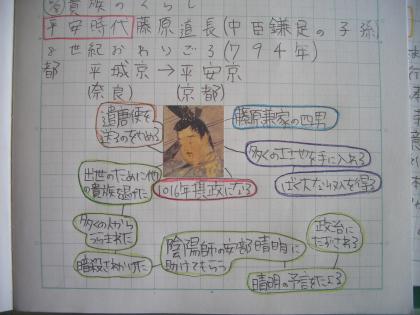 貴族のくらし
平安時代 藤原道長(中臣鎌足の子孫)
8世紀おわりごろ(794年)
都 平城京→平安京
(奈良) (京都)
遣唐使を
送るのをやめる
藤原兼家の四男
多くの土地を手に入れる
ばく大な収入を得る
1016年摂政になる
出世のために他
の貴族を
多くの人から
うらまれた
暗殺されかけた
陰陽師の安部晴明に
助けてもらう
晴明の予言
政治に